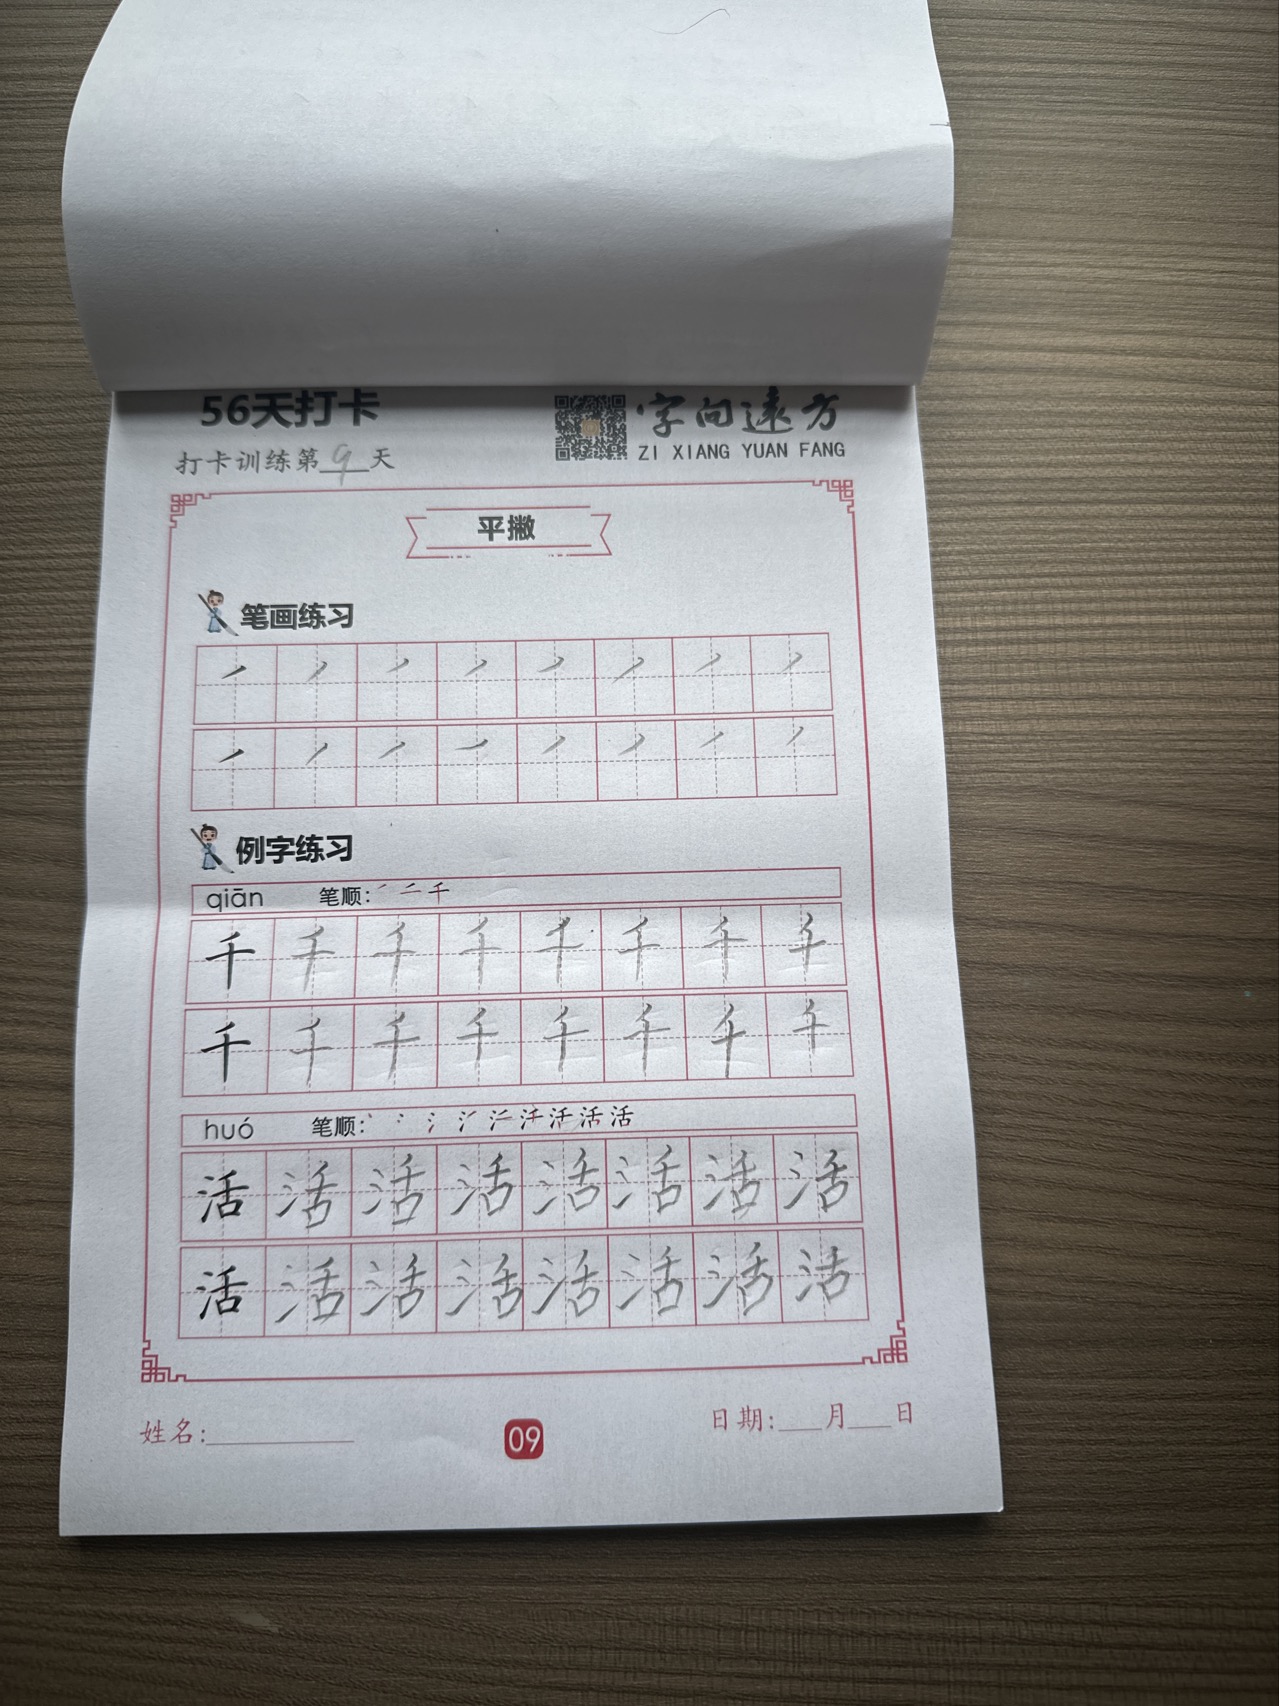 56天打卡
字向远方
ZI XIANG YUAN FANG
打卡训练第9天
平撇
笔画练习
例字练习
qiān 笔顺: 丿 二 千
千 千 千 千 千 千 千 千
千 千 千 千 千 千 千 千
huó 笔顺: 活
活 活 活 活 活 活 活 活
活 活 活 活 活 活 活 活
姓名:
09
日期: 月 日